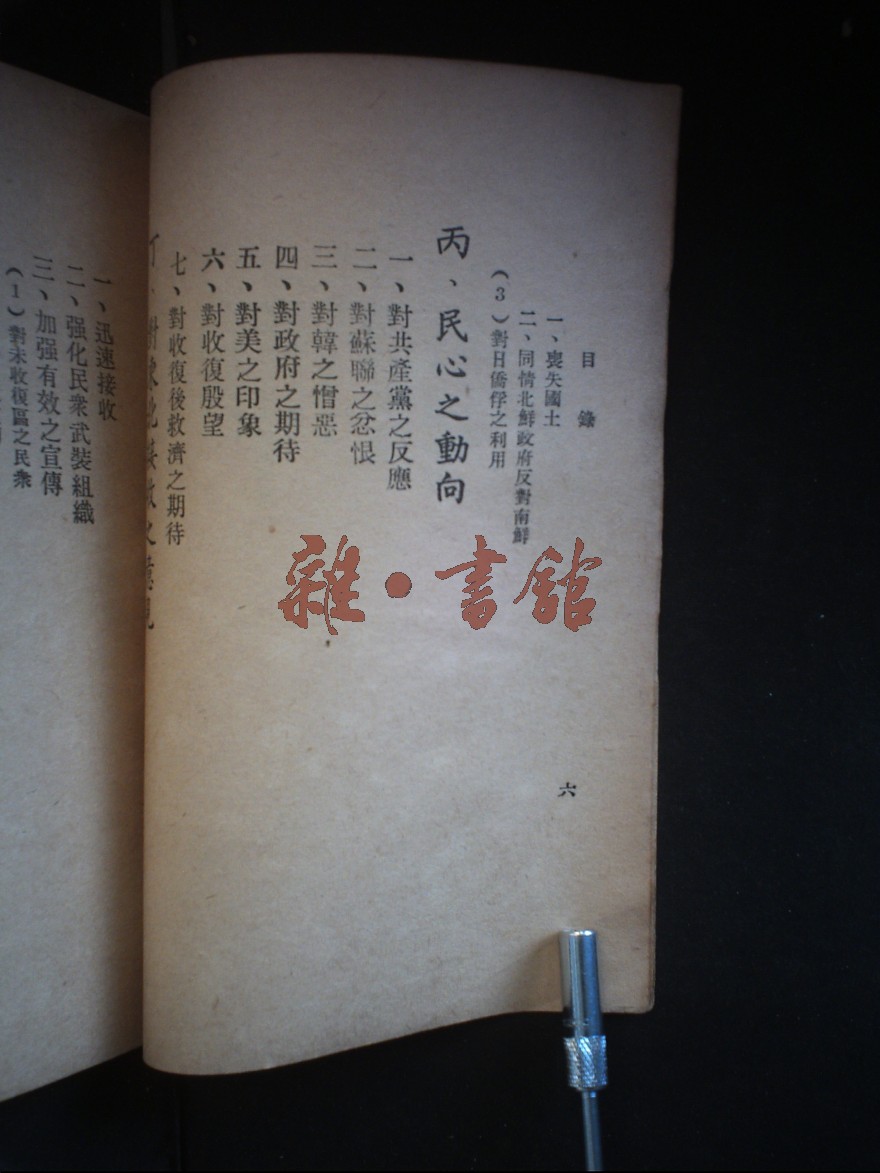 目錄
一、喪失國土
二、同情北鮮政府反對南鮮
（3）對日僑俘之利用
丙、民心之動向
一、對共產黨之反應
二、對蘇聯之忿恨
三、對韓之憎惡
四、對政府之期待
五、對美之印象
六、對收復殷望
七、對收復後救濟之期待
六
一、迅速接收
二、强化民衆武裝組織
三、加强有效之宣傳
（1）對未收復區之民衆
雜·書館